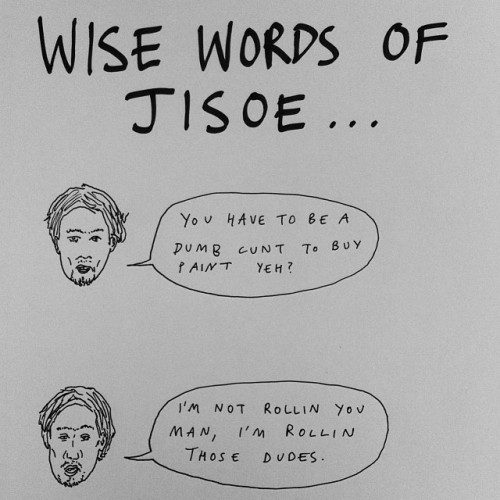 WISE WORDS OF
JISOE...
YOU HAVE TO BE A
DUMB CUNT TO BUY
PAINT YEH?
I'M NOT ROLLIN YOU
MAN, I'M ROLLIN
THOSE DUDES.